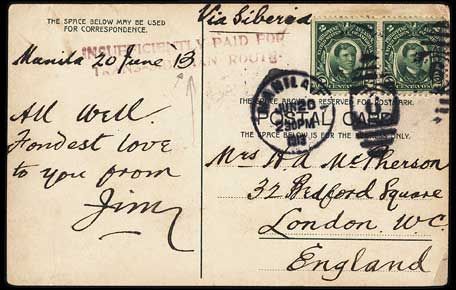 THE SPACE BELOW MAY BE USED
FOR CORRESPONDENCE.
Via Siberia
INSUFFICIENTLY PAID FOR
TRANS-SIBERIAN ROUTE
Manila 20 June 13
All Well
Fondest love
to you from
Jim
2 CENTAVOS
MANILA
JUN 20
230 PM
1913
THE SPACE ABOVE IS RESERVED FOR POSTMARK.
POSTAL CARD
THE SPACE BELOW IS FOR THE ADDRESS ONLY.
Mrs H A McPherson
32 Bedford Square
London. W.C.
England